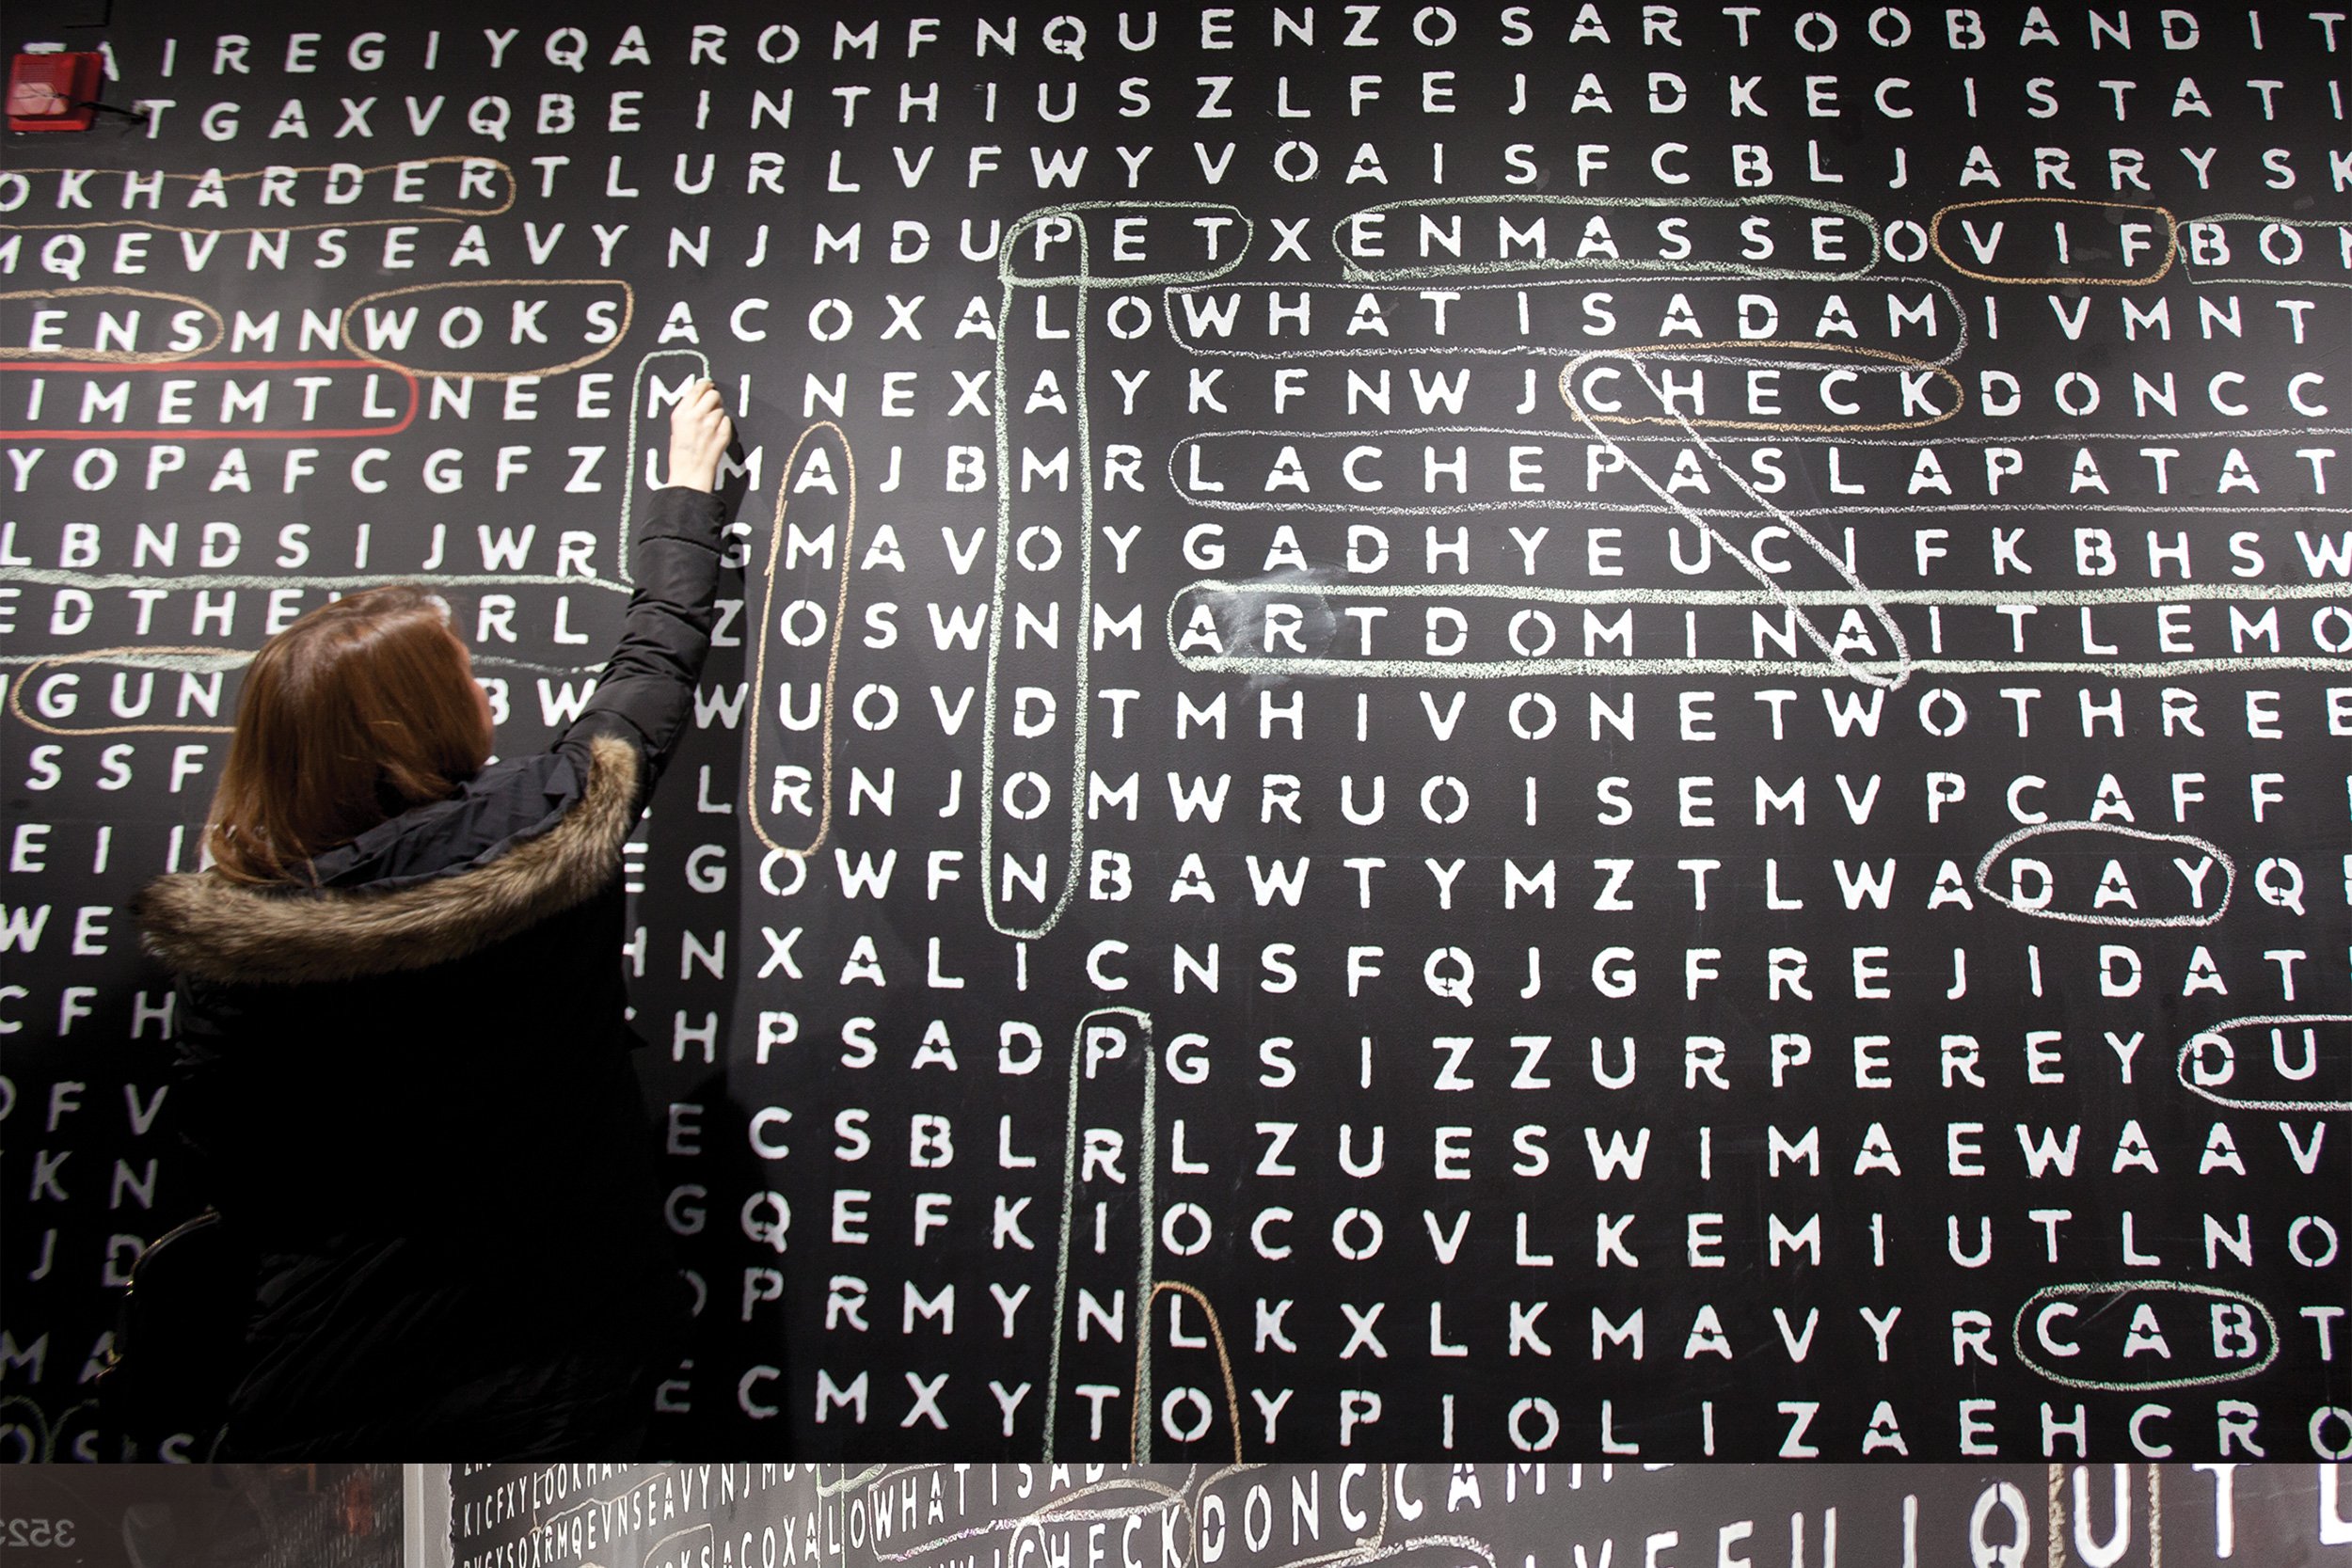 AIREGIYQAROMFNQUENZOSARTOOBANDIT
TGAXVQBEINTHIUSZLFEJADKECISTATI
OKHARDERTLURLVFWYVOAISFCBLJARRYSK
MQEVNSEAVYNJMDUPETXENMASSEOVIFBON
ENSMNWOKSACOXALOWHATISADAMIVMNT
IMEMTLNEEMINEXAYKFNWJCHECKDONCC
YOPAFCGFZUMAJBMRLACHEPASLAPATAT
LBNDSIJWR GMAVOYGADHYEUCIFKBHSW
EDTHE RL ZOSWNMARTDOMINAITLEMO
GUN BW WUOVDTMHIVONETWOTHREEE
SSF LRNJOMWRUOISEMVPCAFF
EII EGOWFNBAWTYMZTLWADAYQ
WE HNXALICNSFQJGFREJIDAT
CFH HPSADPGSIZZURPEREYDU
OFV ECSBLRLZUESWIMAEWAAV
KN GQEFKIOCOVLKEMIUTLNO
JD OPRMYNLKXLKMAVYRCABT
MA ECMXYTOYPIOLIZAEHCRO
OSS
KICFXYLOOKHAR
XRMQEVNSEAVYNJMD
OKSACOXALOWHATISAD
CHECKDONCCAM
VEFUIQUTL
3523